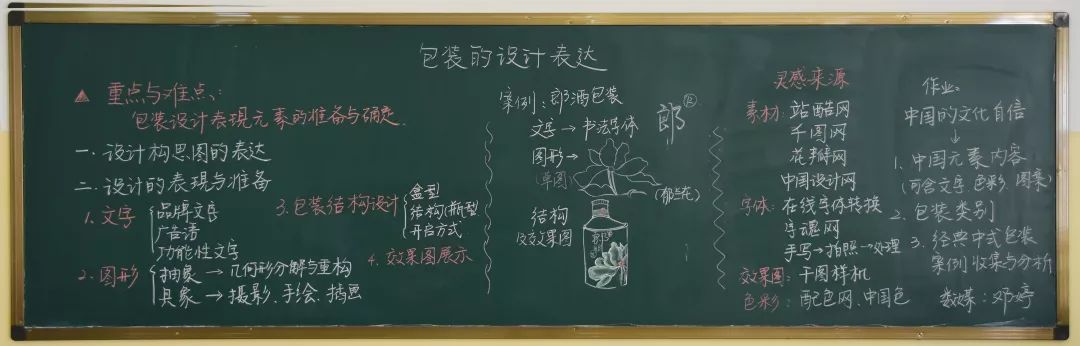 包装的设计表达
▲ 重点与难点:
包装设计表现元素的准备与确定
一. 设计构思图的表达
二. 设计的表现与准备
1. 文字 { 品牌文字
广告语
功能性文字
2. 图形 { 抽象 → 几何形分解与重构
具象 → 摄影、手绘、插画
3. 包装结构设计 { 盒型
结构(瓶型
开启方式
4. 效果图展示
案例:郎酒包装
文字 → 书法字体
郎
图形 →
(草图)
结构
及效果图
灵感来源
素材: 站酷网
千图网
花瓣网
中国设计网
字体: 在线字体转换
字魂网
手写→拍照→处理
效果图: 千图样机
色彩: 配色网、中国色
作业:
中国的文化自信
↓
1. 中国元素内容
(可含文字、色彩、图案)
2. 包装类别
3. 经典中式包装
案例收集与分析
数媒:邓婷